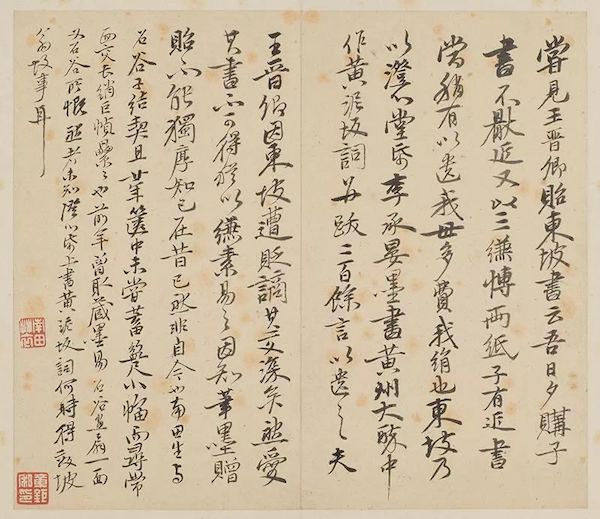 嘗見王晉卿貽東坡書云吾日夕購子
書不厭近又以三縑博兩紙子有近書
當稍有以遺我毋多費我絹也東坡乃
以澄心堂紙李承晏墨書黃州大醉中
作黃泥坂詞并跋二百餘言以遺之夫
王晉卿因東坡遭貶謫其交深矣然愛
其書不可得猶以縑素易之因知筆墨贈
貽不能獨厚知己在昔已然非自今也南田生与
石谷子結契且廿年篋中未嘗蓄其小幅而尋常
面交長綃巨幀纍纍也前年曾取藏墨易石谷畫扇一面
又石谷所慨 者未知澄心帋上書黃泥坂詞何時得效坡
翁故事耳
南田